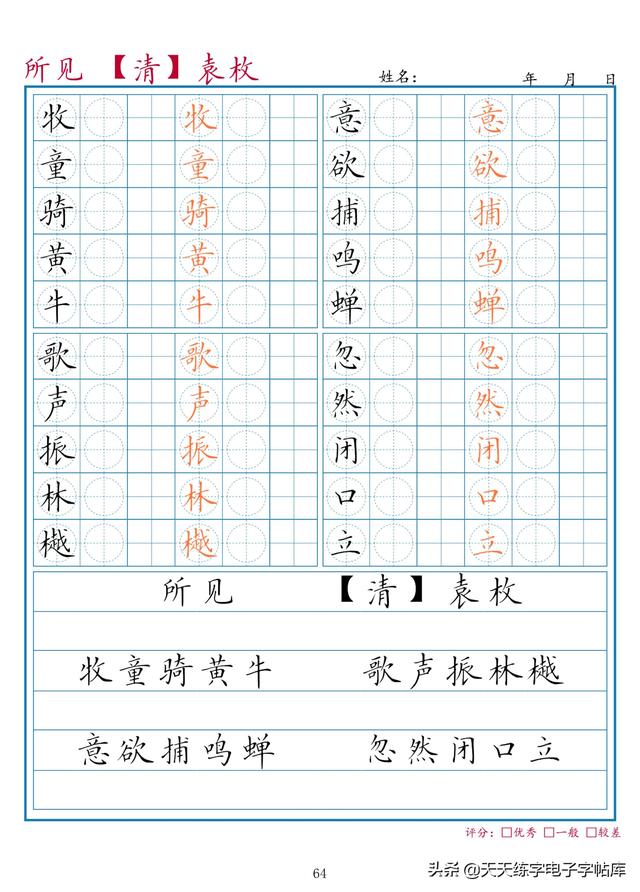 所见 【清】袁枚 姓名: 年 月 日
牧 牧 意 意
童 童 欲 欲
骑 骑 捕 捕
黄 黄 鸣 鸣
牛 牛 蝉 蝉
歌 歌 忽 忽
声 声 然 然
振 振 闭 闭
林 林 口 口
樾 樾 立 立
所见 【清】袁枚
牧童骑黄牛 歌声振林樾
意欲捕鸣蝉 忽然闭口立
评分: □优秀 □一般 □较差
64
头条 @天天练字电子字帖库